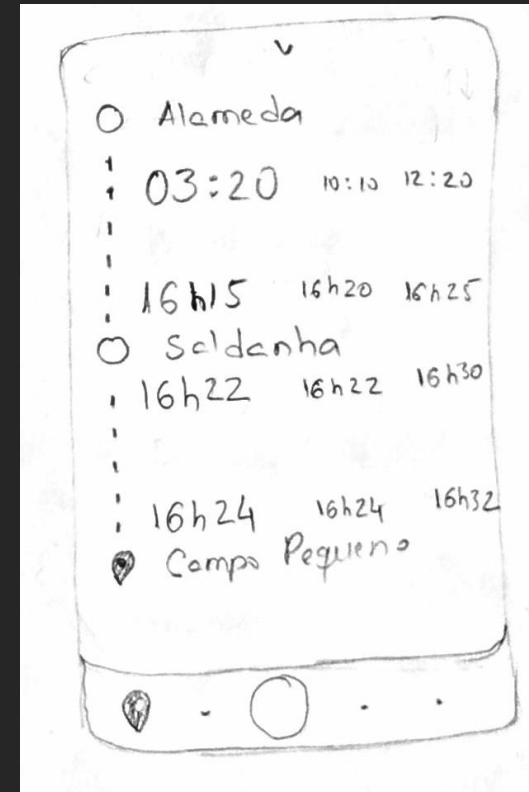 Alameda
03:20 10:10 12:20
16h15 16h20 16h25
Saldanha
16h22 16h22 16h30
16h24 16h24 16h32
Campo Pequeno